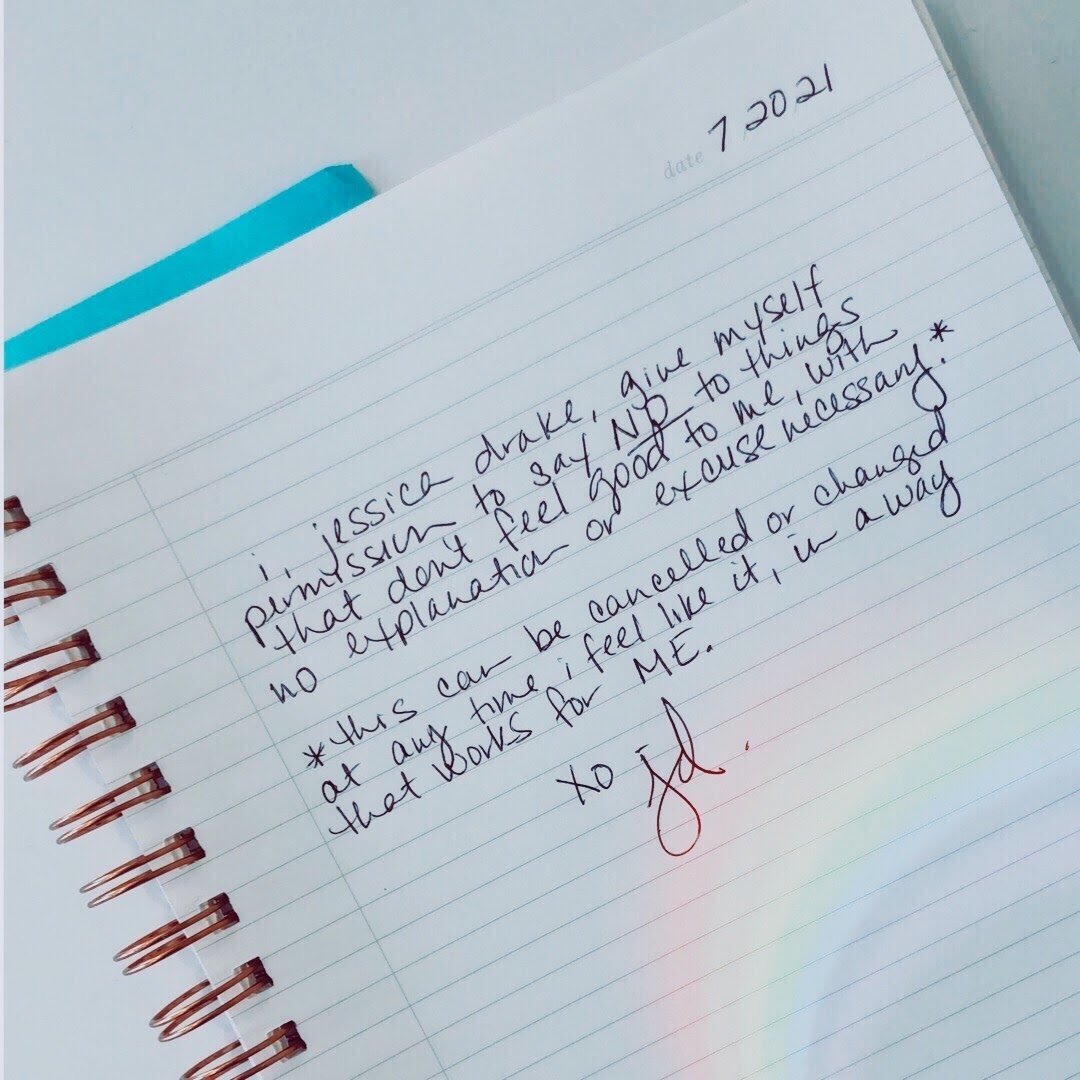 date 7 2021
i, jessica drake, give myself
permission to say NO to things
that dont feel good to me, with
no explanation or excuse necessary.*
*this can be cancelled or changed
at any time i feel like it, in a way
that works for ME.
xo jd.